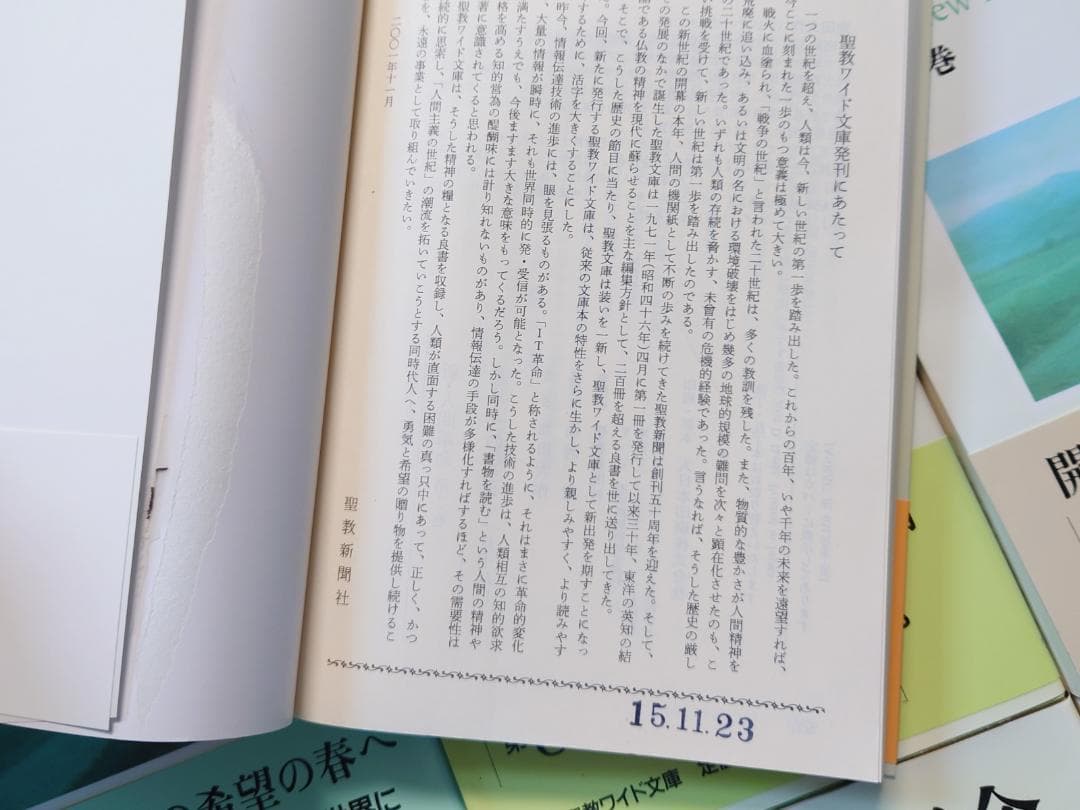 聖教ワイド文庫発刊にあたって
一つの世紀を超え、人類は今、新しい世紀の第一歩を踏み出した。これからの百年、いや千年の未来を遠望すれば、
今ここに刻まれた一歩のもつ意義は極めて大きい。
戦火に血塗られ、「戦争の世紀」と言われた二十世紀は、多くの教訓を残した。また、物質的な豊かさが人間精神を
荒廃に追い込み、あるいは文明の名における環境破壊をはじめ幾多の地球的規模の難問を次々と顕在化させたのも、こ
の二十世紀であった。いずれも人類の存続を脅かす、未曾有の危機的経験であった。言うなれば、そうした歴史の厳し
い挑戦を受けて、新しい世紀は第一歩を踏み出したのである。
この新世紀の開幕の本年、人間の機関紙として不断の歩みを続けてきた聖教新聞は創刊五十周年を迎えた。そして、
の発展のなかで誕生した聖教文庫は一九七一年(昭和四十六年)四月に第一冊を発行して以来三十年、東洋の英知の結
である仏教の精神を現代に蘇らせることを主な編集方針として、二百冊を超える良書を世に送り出してきた。
そこで、こうした歴史の節目に当たり、聖教文庫は装いを一新し、聖教ワイド文庫として新出発を期すことになっ
。今回、新たに発行する聖教ワイド文庫は、従来の文庫本の特性をさらに生かし、より親しみやすく、より読みやす
するために、活字を大きくすることにした。
昨今、情報伝達技術の進歩には、眼を見張るものがある。「IT革命」と称されるように、それはまさに革命的変化
、大量の情報が瞬時に、それも世界同時的に発・受信が可能となった。こうした技術の進歩は、人類相互の知的欲求
満たすうえでも、今後ますます大きな意味をもってくるだろう。しかし同時に、「書物を読む」という人間の精神や
格を高める知的営為の醍醐味には計り知れないものがあり、情報伝達の手段が多様化すればするほど、その需要性は
著に意識されてくると思われる。
聖教ワイド文庫は、そうした精神の糧となる良書を収録し、人類が直面する困難の真っ只中にあって、正しく、かつ
続的に思索し、「人間主義の世紀」の潮流を拓いていこうとする同時代人へ、勇気と希望の贈り物を提供し続けるこ
を、永遠の事業として取り組んでいきたい。
二〇〇一年十一月
聖教新聞社
15.11.23
巻
開
の希望の春へ
世界に
教ワイド文庫